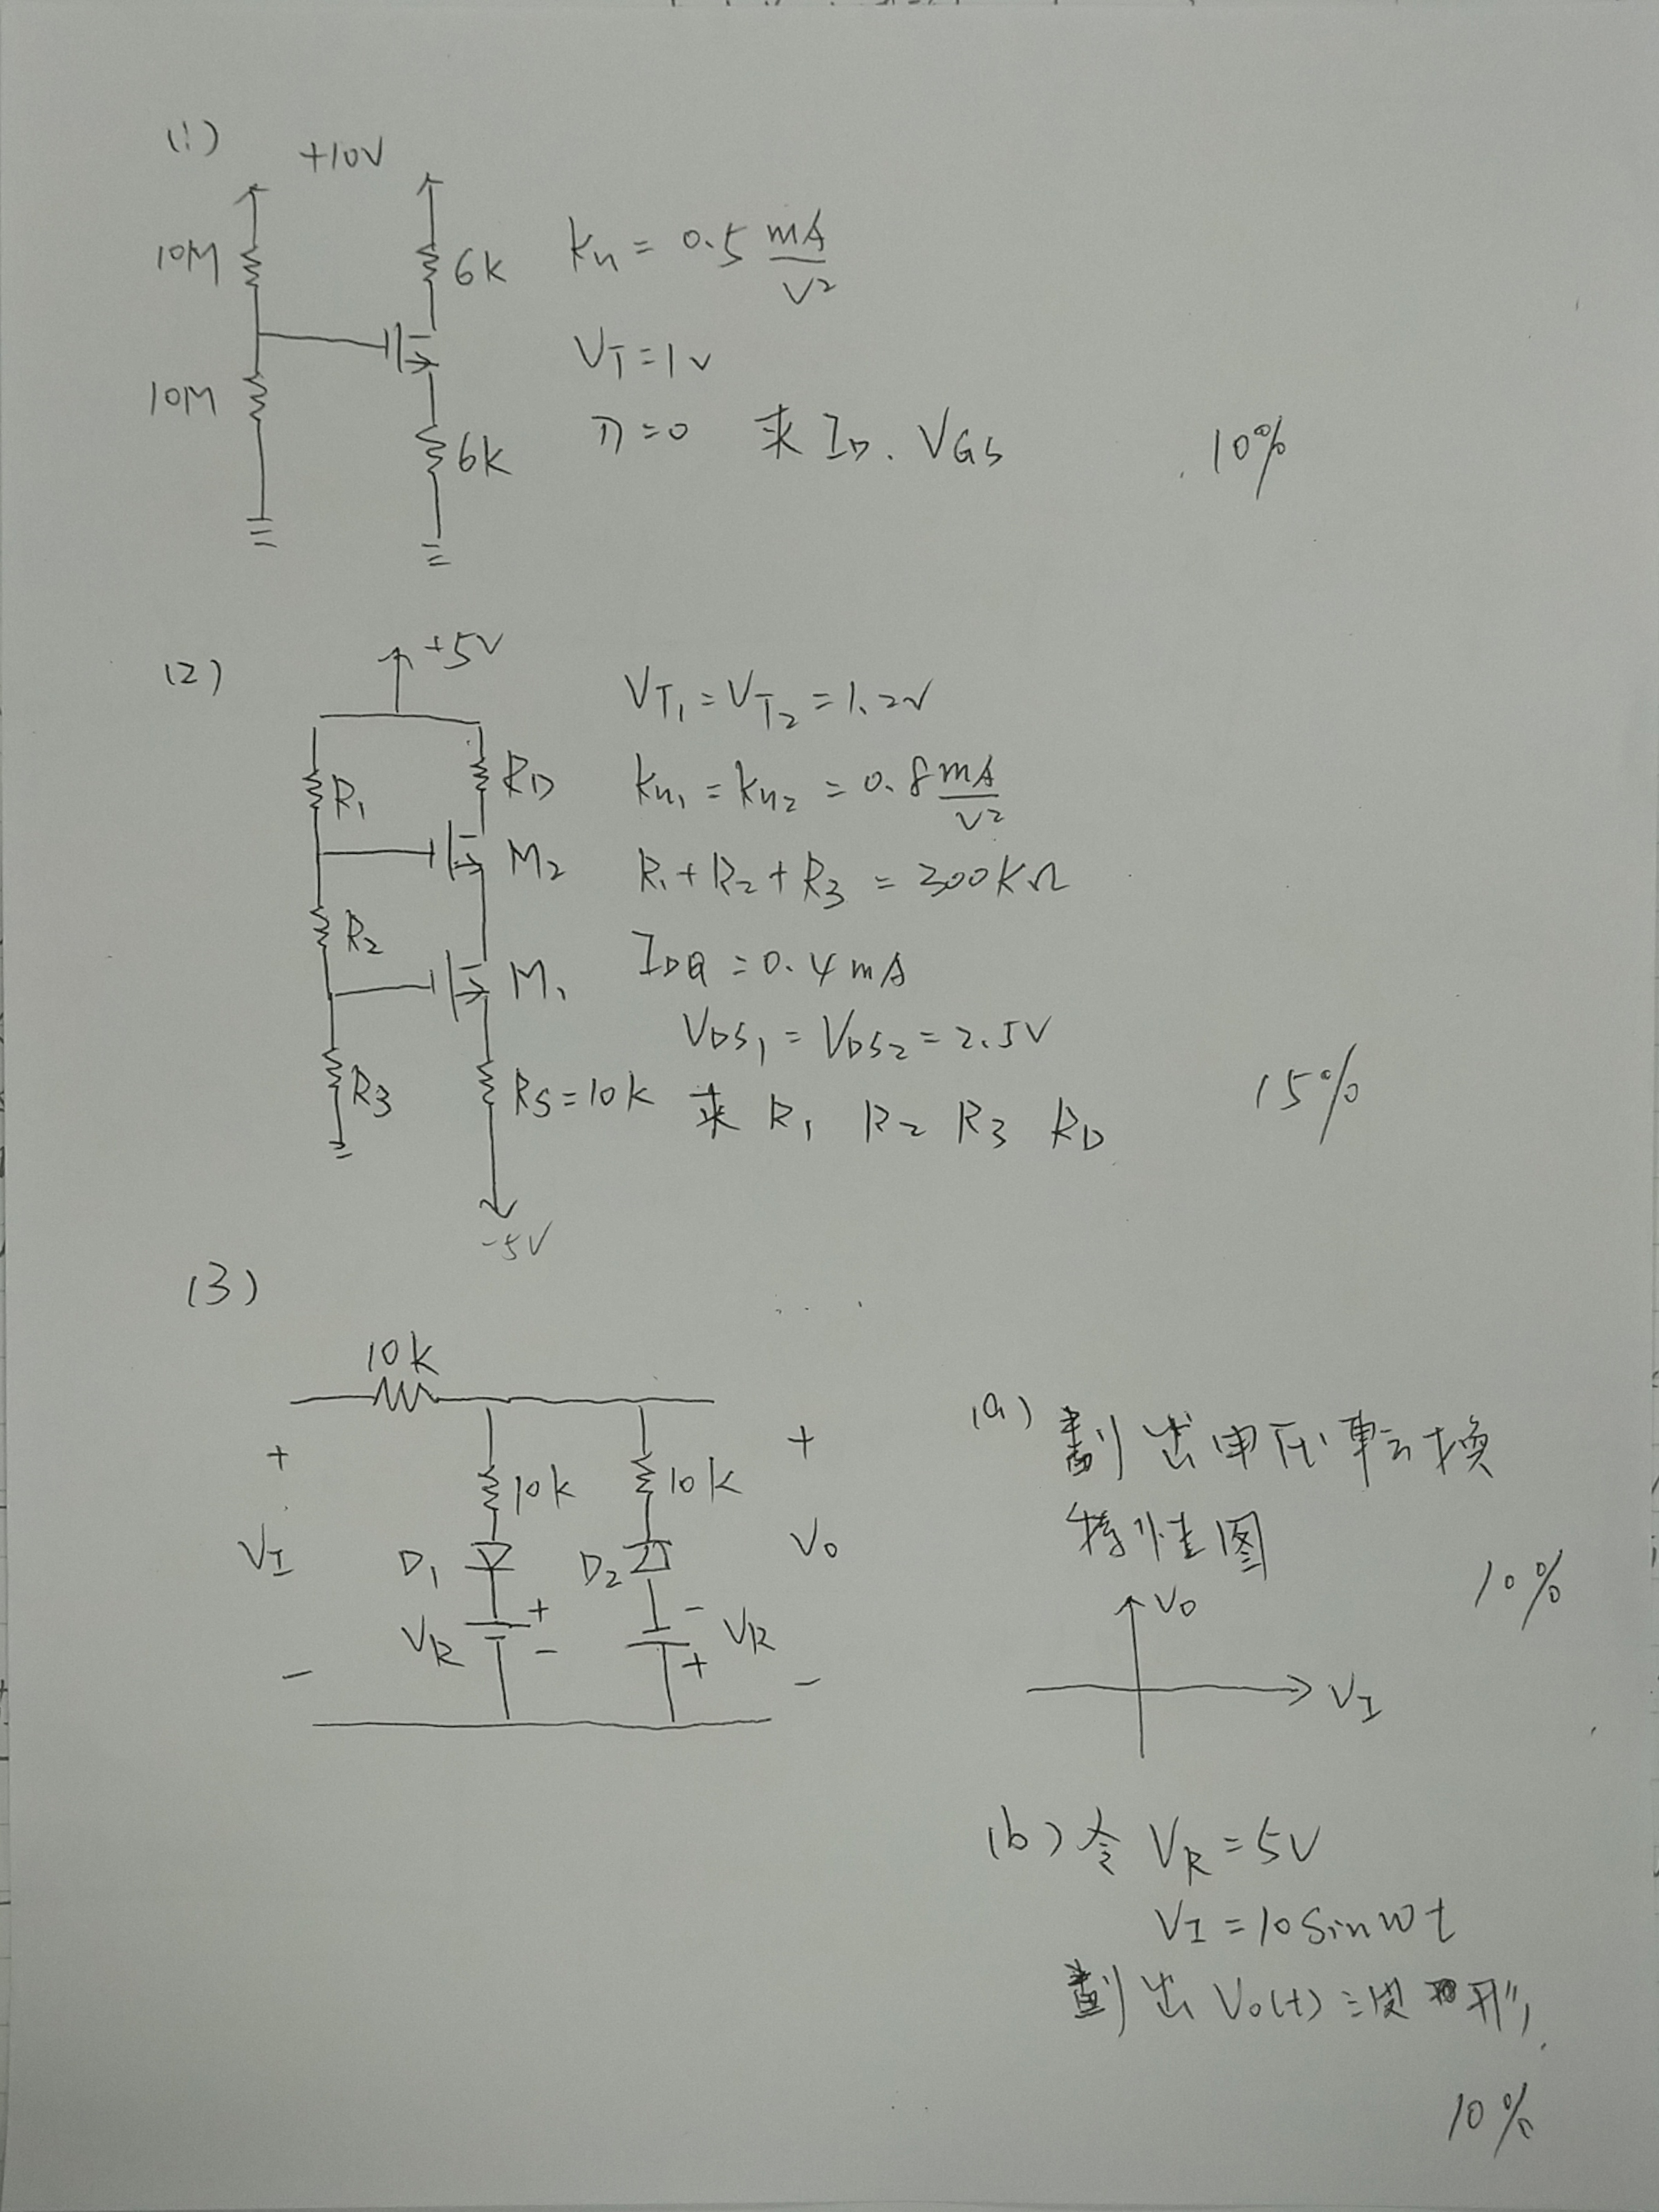 (1)
+10V
10M
6K
10M
6K
Kn = 0.5 mA/V²
VT = 1V
λ = 0 求 ID. VGS
10%
(2)
+5V
R1
RD
M2
R2
M1
R3
RS = 10K
-5V
VT1 = VT2 = 1.2V
Kn1 = Kn2 = 0.8 mA/V²
R1 + R2 + R3 = 300KΩ
IDQ = 0.4mA
VDS1 = VDS2 = 2.5V
求 R1 R2 R3 RD
15%
(3)
10K
+
10K
10K
+
VI
D1
D2
VO
VR
+
-
-
+
VR
-
-
(a) 劃出电压転換
特性图
10%
VO
VI
(b) 令 VR = 5V
VI = 10 Sin wt
劃出 Vo(t) 之波形,
10%